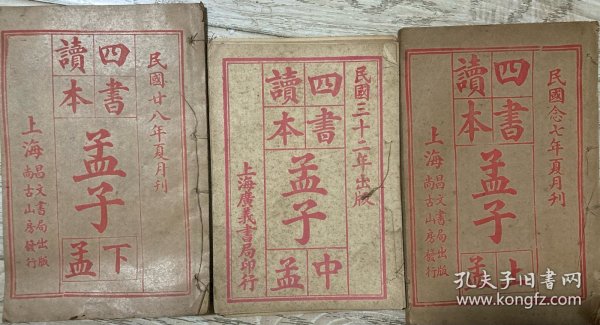 民國廿八年夏月刊
四書
讀本
孟子
下孟
上海 昌文書局出版
尚古山房發行
民國三十二年出版
四書
讀本
孟子
中孟
上海廣義書局印行
民國念七年夏月刊
四書
讀本
孟子
上孟
上海 昌文書局出版
尚古山房發行
孔夫子旧书网
www.kongfz.com